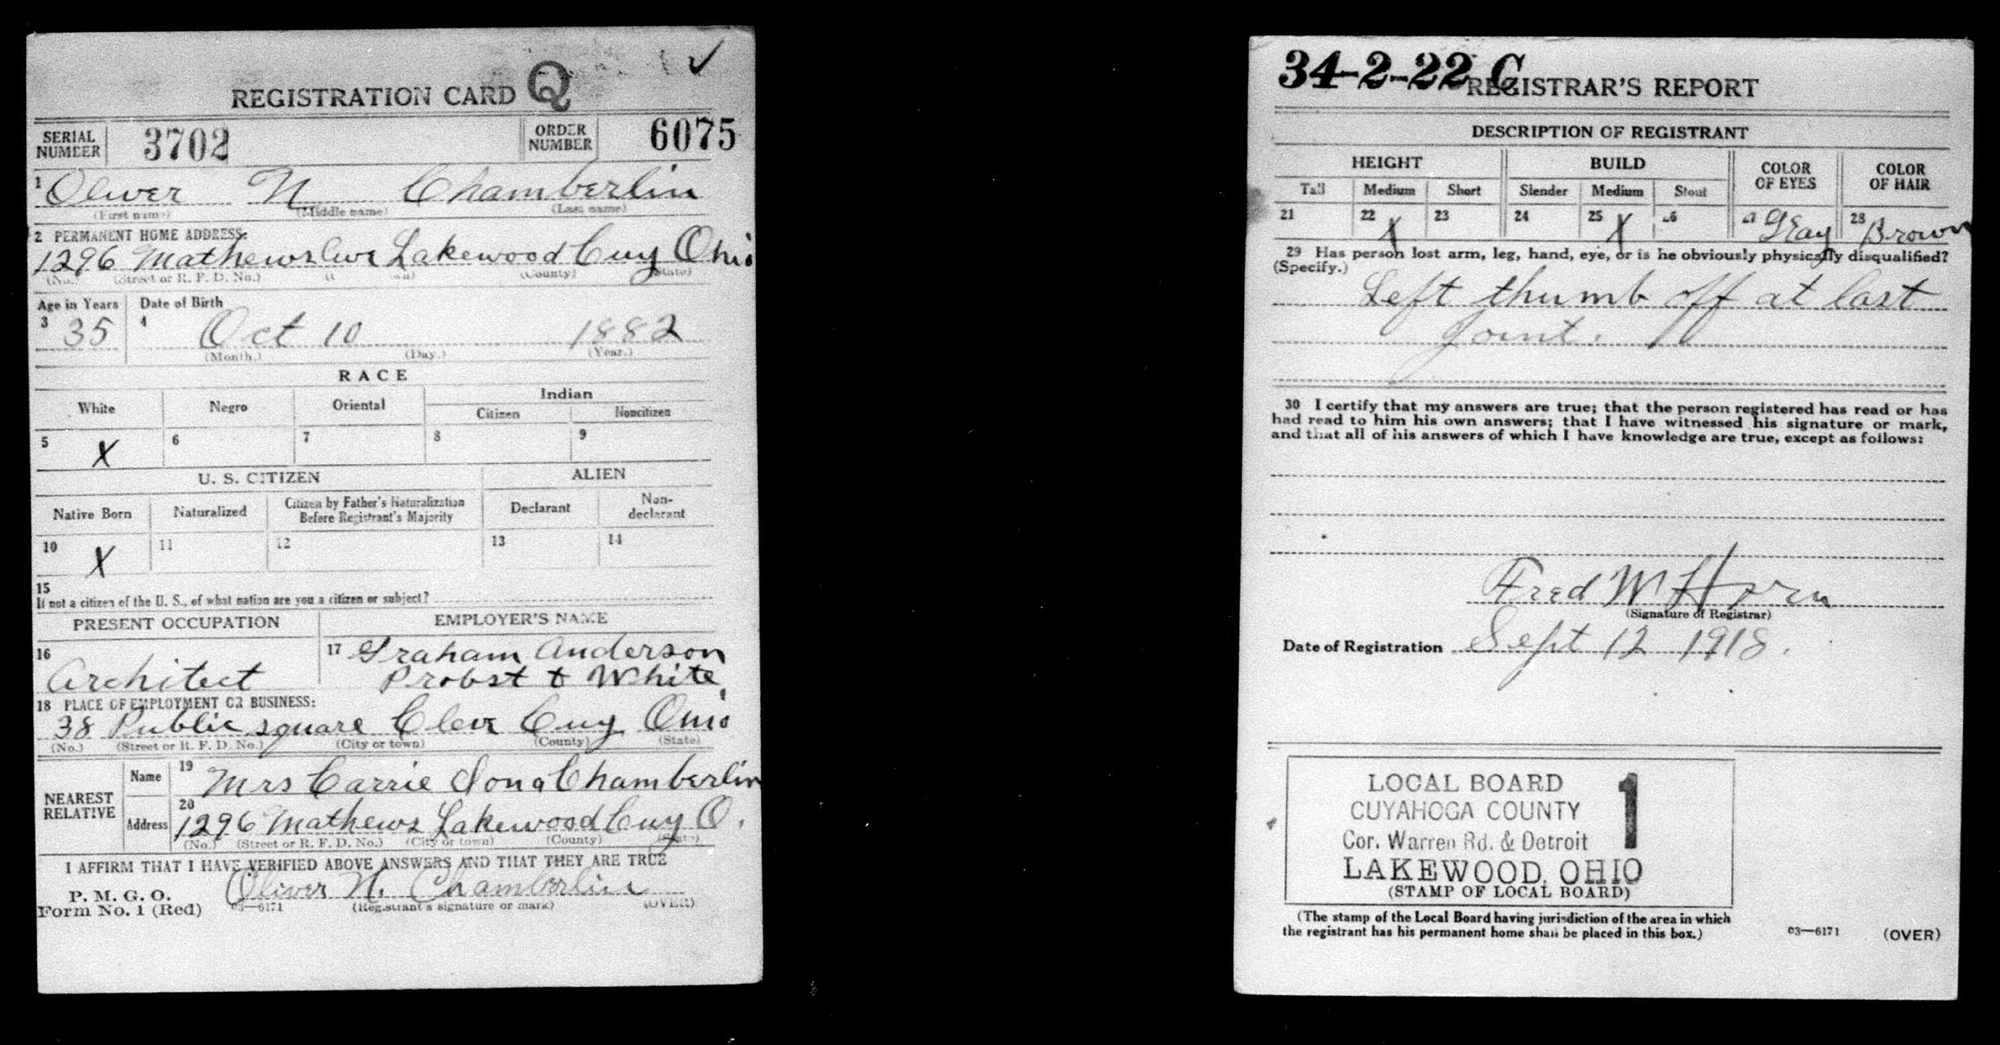 REGISTRATION CARD Q ✓
SERIAL NUMBER 3702 ORDER NUMBER 6075
1 Oliver N Chamberlin
(First name) (Middle name) (Last name)
2 PERMANENT HOME ADDRESS:
1296 Mathews Ave Lakewood Cuy Ohio
(No.) (Street or R. F. D. No.) (County) (State)
Age in Years Date of Birth
3 35 4 Oct 10 1882
(Month.) (Day.) (Year.)
RACE
White Negro Oriental Indian
Citizen Noncitizen
5 X 6 7 8 9
U. S. CITIZEN ALIEN
Native Born Naturalized Citizen by Father's Naturalization Before Registrant's Majority Declarant Non-declarant
10 X 11 12 13 14
15
If not a citizen of the U. S., of what nation are you a citizen or subject?
PRESENT OCCUPATION EMPLOYER'S NAME
16 17 Graham Anderson
Architect Probst & White
18 PLACE OF EMPLOYMENT OR BUSINESS:
38 Public square Cleve Cuy Ohio
(No.) (Street or R. F. D. No.) (City or town) (County) (State)
NEAREST RELATIVE
Name 19 Mrs Carrie Iona Chamberlin
Address 20 1296 Mathews Lakewood Cuy O.
(No.) (Street or R. F. D. No.) (City or town) (County) (State)
I AFFIRM THAT I HAVE VERIFIED ABOVE ANSWERS AND THAT THEY ARE TRUE
P. M. G. O.
Form No. 1 (Red) Oliver N. Chamberlin
03—6171 (Registrant's signature or mark) (OVER)
34-2-22 C REGISTRAR'S REPORT
DESCRIPTION OF REGISTRANT
HEIGHT BUILD COLOR OF EYES COLOR OF HAIR
Tall Medium Short Slender Medium Stout
21 22 X 23 24 25 X 26 27 Gray 28 Brown
29 Has person lost arm, leg, hand, eye, or is he obviously physically disqualified?
(Specify.)
Left thumb off at last
joint.
30 I certify that my answers are true; that the person registered has read or has
had read to him his own answers; that I have witnessed his signature or mark,
and that all of his answers of which I have knowledge are true, except as follows:
Fred W Horn
(Signature of Registrar)
Date of Registration Sept 12 1918.
LOCAL BOARD 1
CUYAHOGA COUNTY
Cor. Warren Rd. & Detroit
LAKEWOOD, OHIO
(STAMP OF LOCAL BOARD)
(The stamp of the Local Board having jurisdiction of the area in which
the registrant has his permanent home shall be placed in this box.)
03—6171 (OVER)